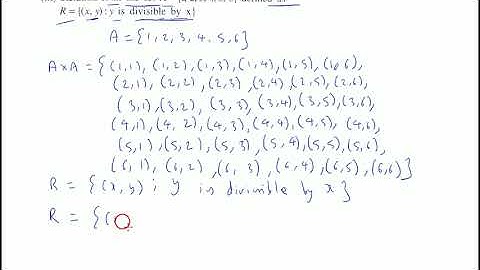 R = {(x, y) : y is divisible by x}
A = {1, 2, 3, 4, 5, 6}
A×A = {(1,1), (1,2), (1,3), (1,4), (1,5), (1,6),
(2,1), (2,2), (2,3), (2,4), (2,5), (2,6),
(3,1), (3,2), (3,3), (3,4), (3,5), (3,6),
(4,1), (4,2), (4,3), (4,4), (4,5), (4,6),
(5,1), (5,2), (5,3), (5,4), (5,5), (5,6),
(6,1), (6,2), (6,3), (6,4), (6,5), (6,6)}
R = {(x, y) : y is divisible by x}
R = {(